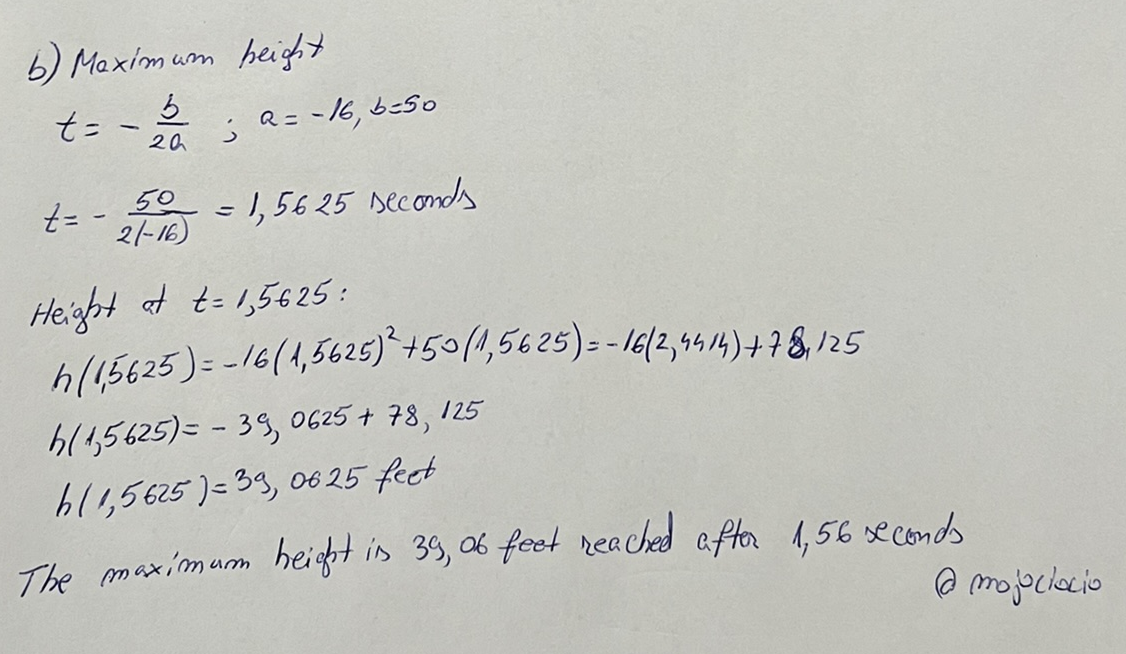 b) Maximum height
t = - b/2a ; a = -16, b=50
t = - 50/2(-16) = 1,5625 seconds
Height at t = 1,5625 :
h(1,5625) = -16(1,5625)² + 50(1,5625) = -16(2,4414) + 78,125
h(1,5625) = - 39,0625 + 78,125
h(1,5625) = 39,0625 feet
The maximum height is 39,06 feet reached after 1,56 seconds